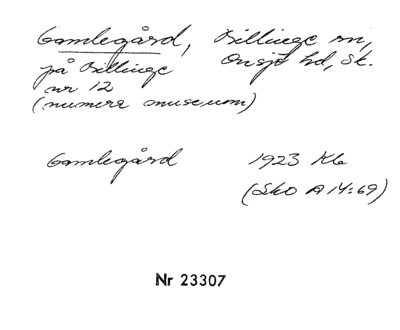 Gamlegård, Billinge sn,
på Billinge Onsjö hd, Sk.
nr 12
(numera museum)
Gamlegård 1923 Kb
(Sko A 14:69)
Nr 23307